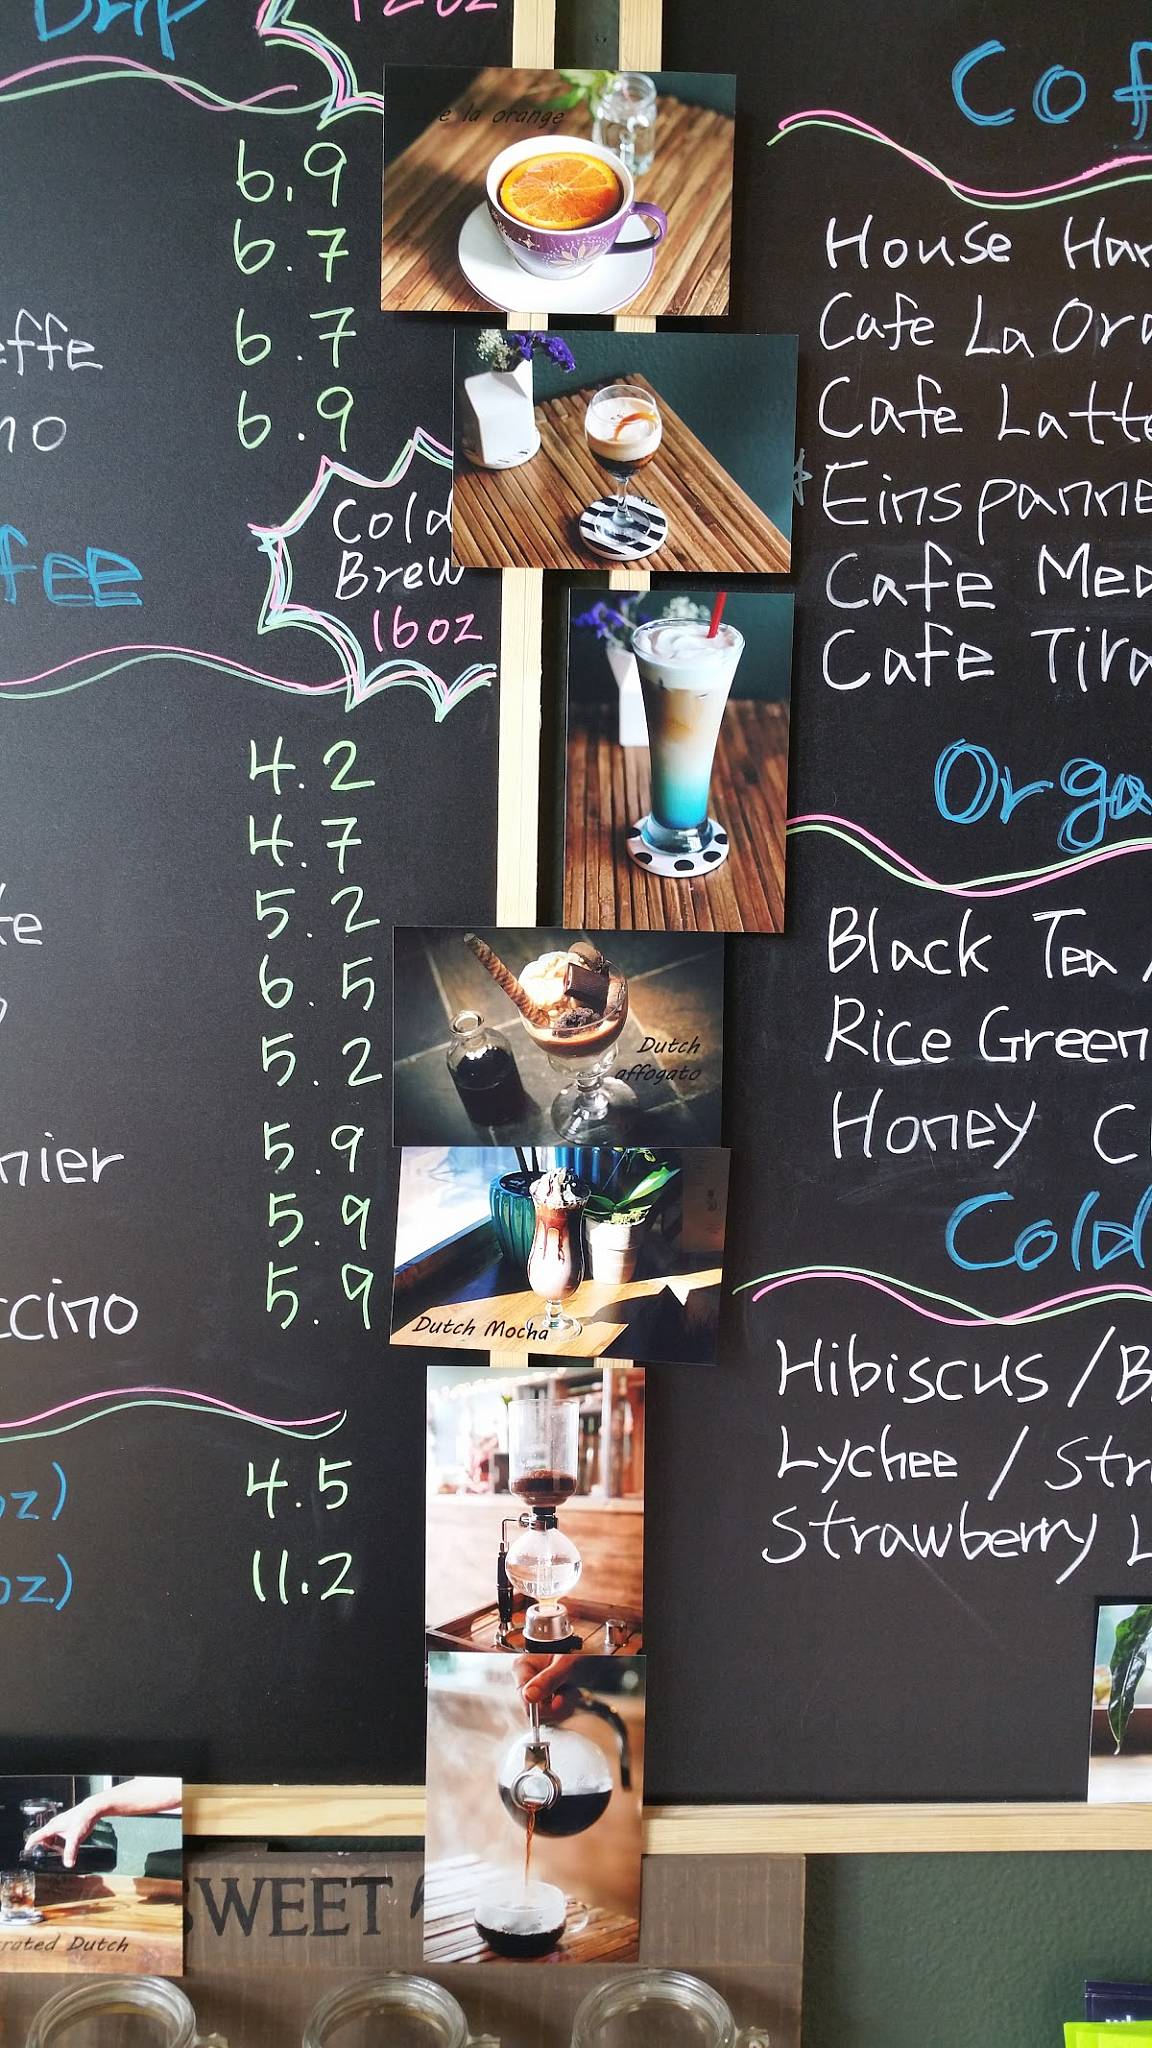 Drip
12oz
6.9
6.7
effe 6.7
no 6.9
Cold
Brew
16oz
fee
4.2
4.7
te 5.2
6.5
5.2
nier 5.9
5.9
ccino 5.9
oz) 4.5
oz) 11.2
e la orange
Dutch
affogato
Dutch Mocha
rated Dutch
SWEET
Cof
House Han
Cafe La Ora
Cafe Latte
Einspanne
Cafe Med
Cafe Tira
Orga
Black Tea /
Rice Green
Honey C
Cold
Hibiscus / B
Lychee / Str
Strawberry L